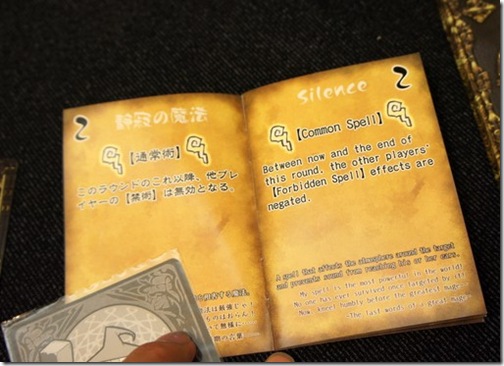 2
静寂の魔法
【通常術】
このラウンドのこれ以降、他プレ
イヤーの【禁術】は無効となる。
Silence
2
【Common Spell】
Between now and the end of
this round, the other players'
【Forbidden Spell】 effects are
negated.
A spell that affects the atmosphere around the target
and prevents sound from reaching his or her ears.
My spell is the most powerful in the world!
No one has ever survived once targeted by it.
Now, kneel humbly before the greatest mage—
-The last words of a great mage-